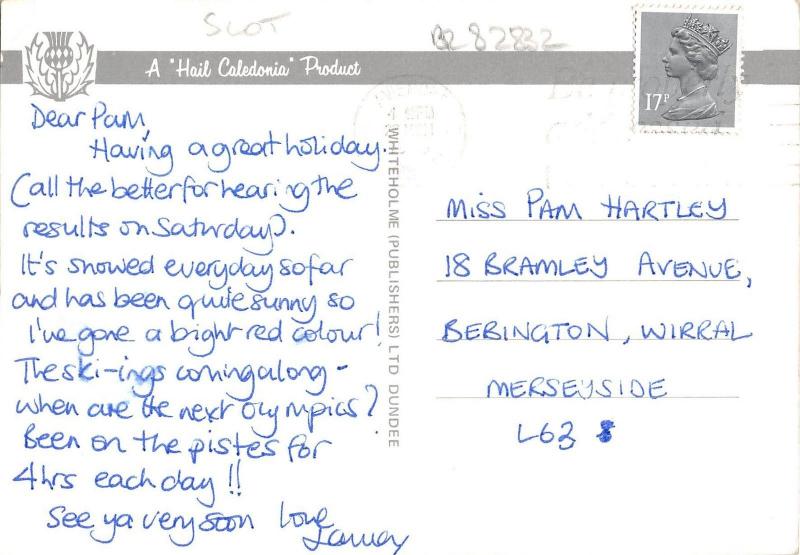 SCOT
BR 82832
A "Hail Caledonia" Product
17P
Dear Pam,
Having a great holiday.
(all the better for hearing the
results on Saturday).
It's snowed everyday so far
and has been quite sunny so
I've gone a bright red colour!
The ski-ings coming along -
when are the next Olympics?
Been on the pistes for
4hrs each day!!
See ya very soon love
WHITEHOLME (PUBLISHERS) LTD DUNDEE
MISS PAM HARTLEY
18 BRAMLEY AVENUE,
BEBINGTON, WIRRAL
MERSEYSIDE
L63